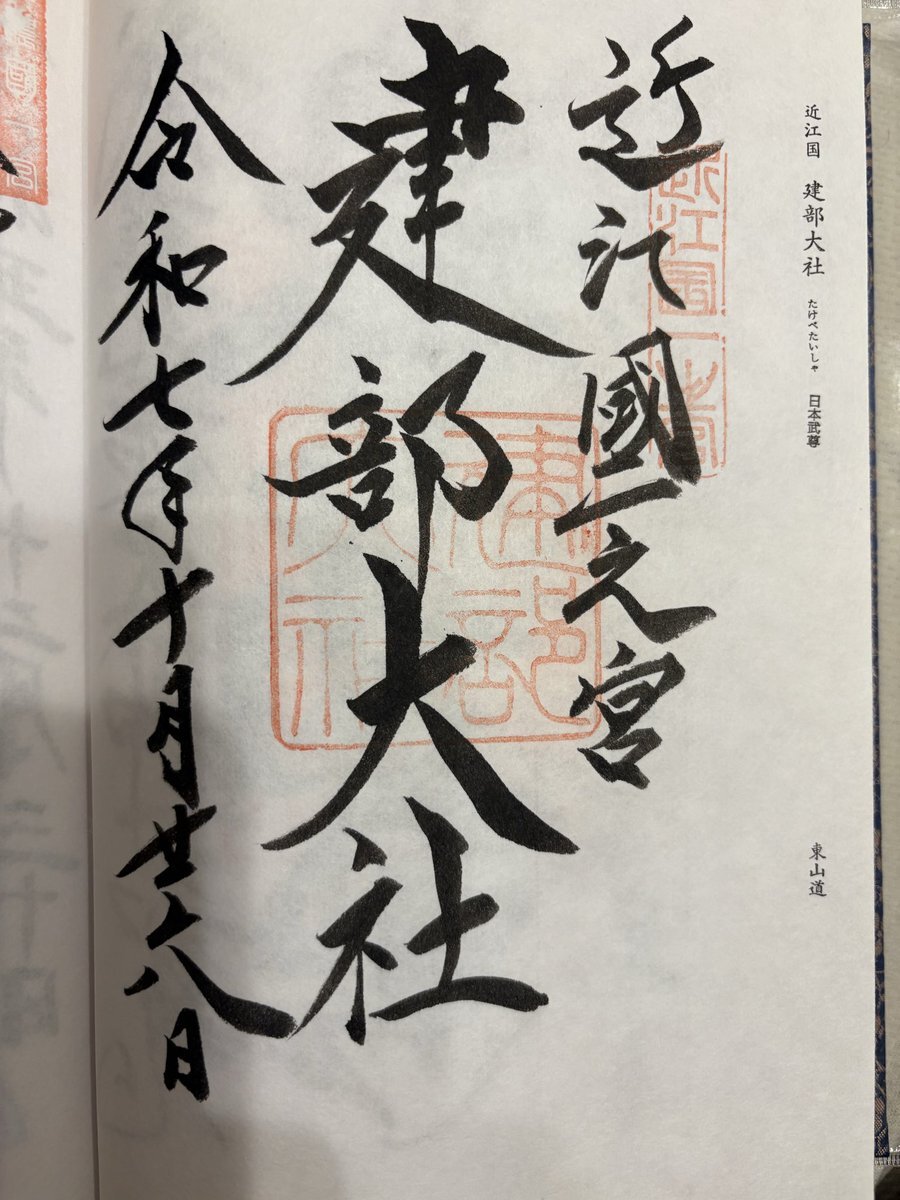 近江国 建部大社 たけべたいしゃ 日本武尊
東山道
近江國一之宮
近江國一之宮
建部大社
建部大社
令和七年十月廿六日